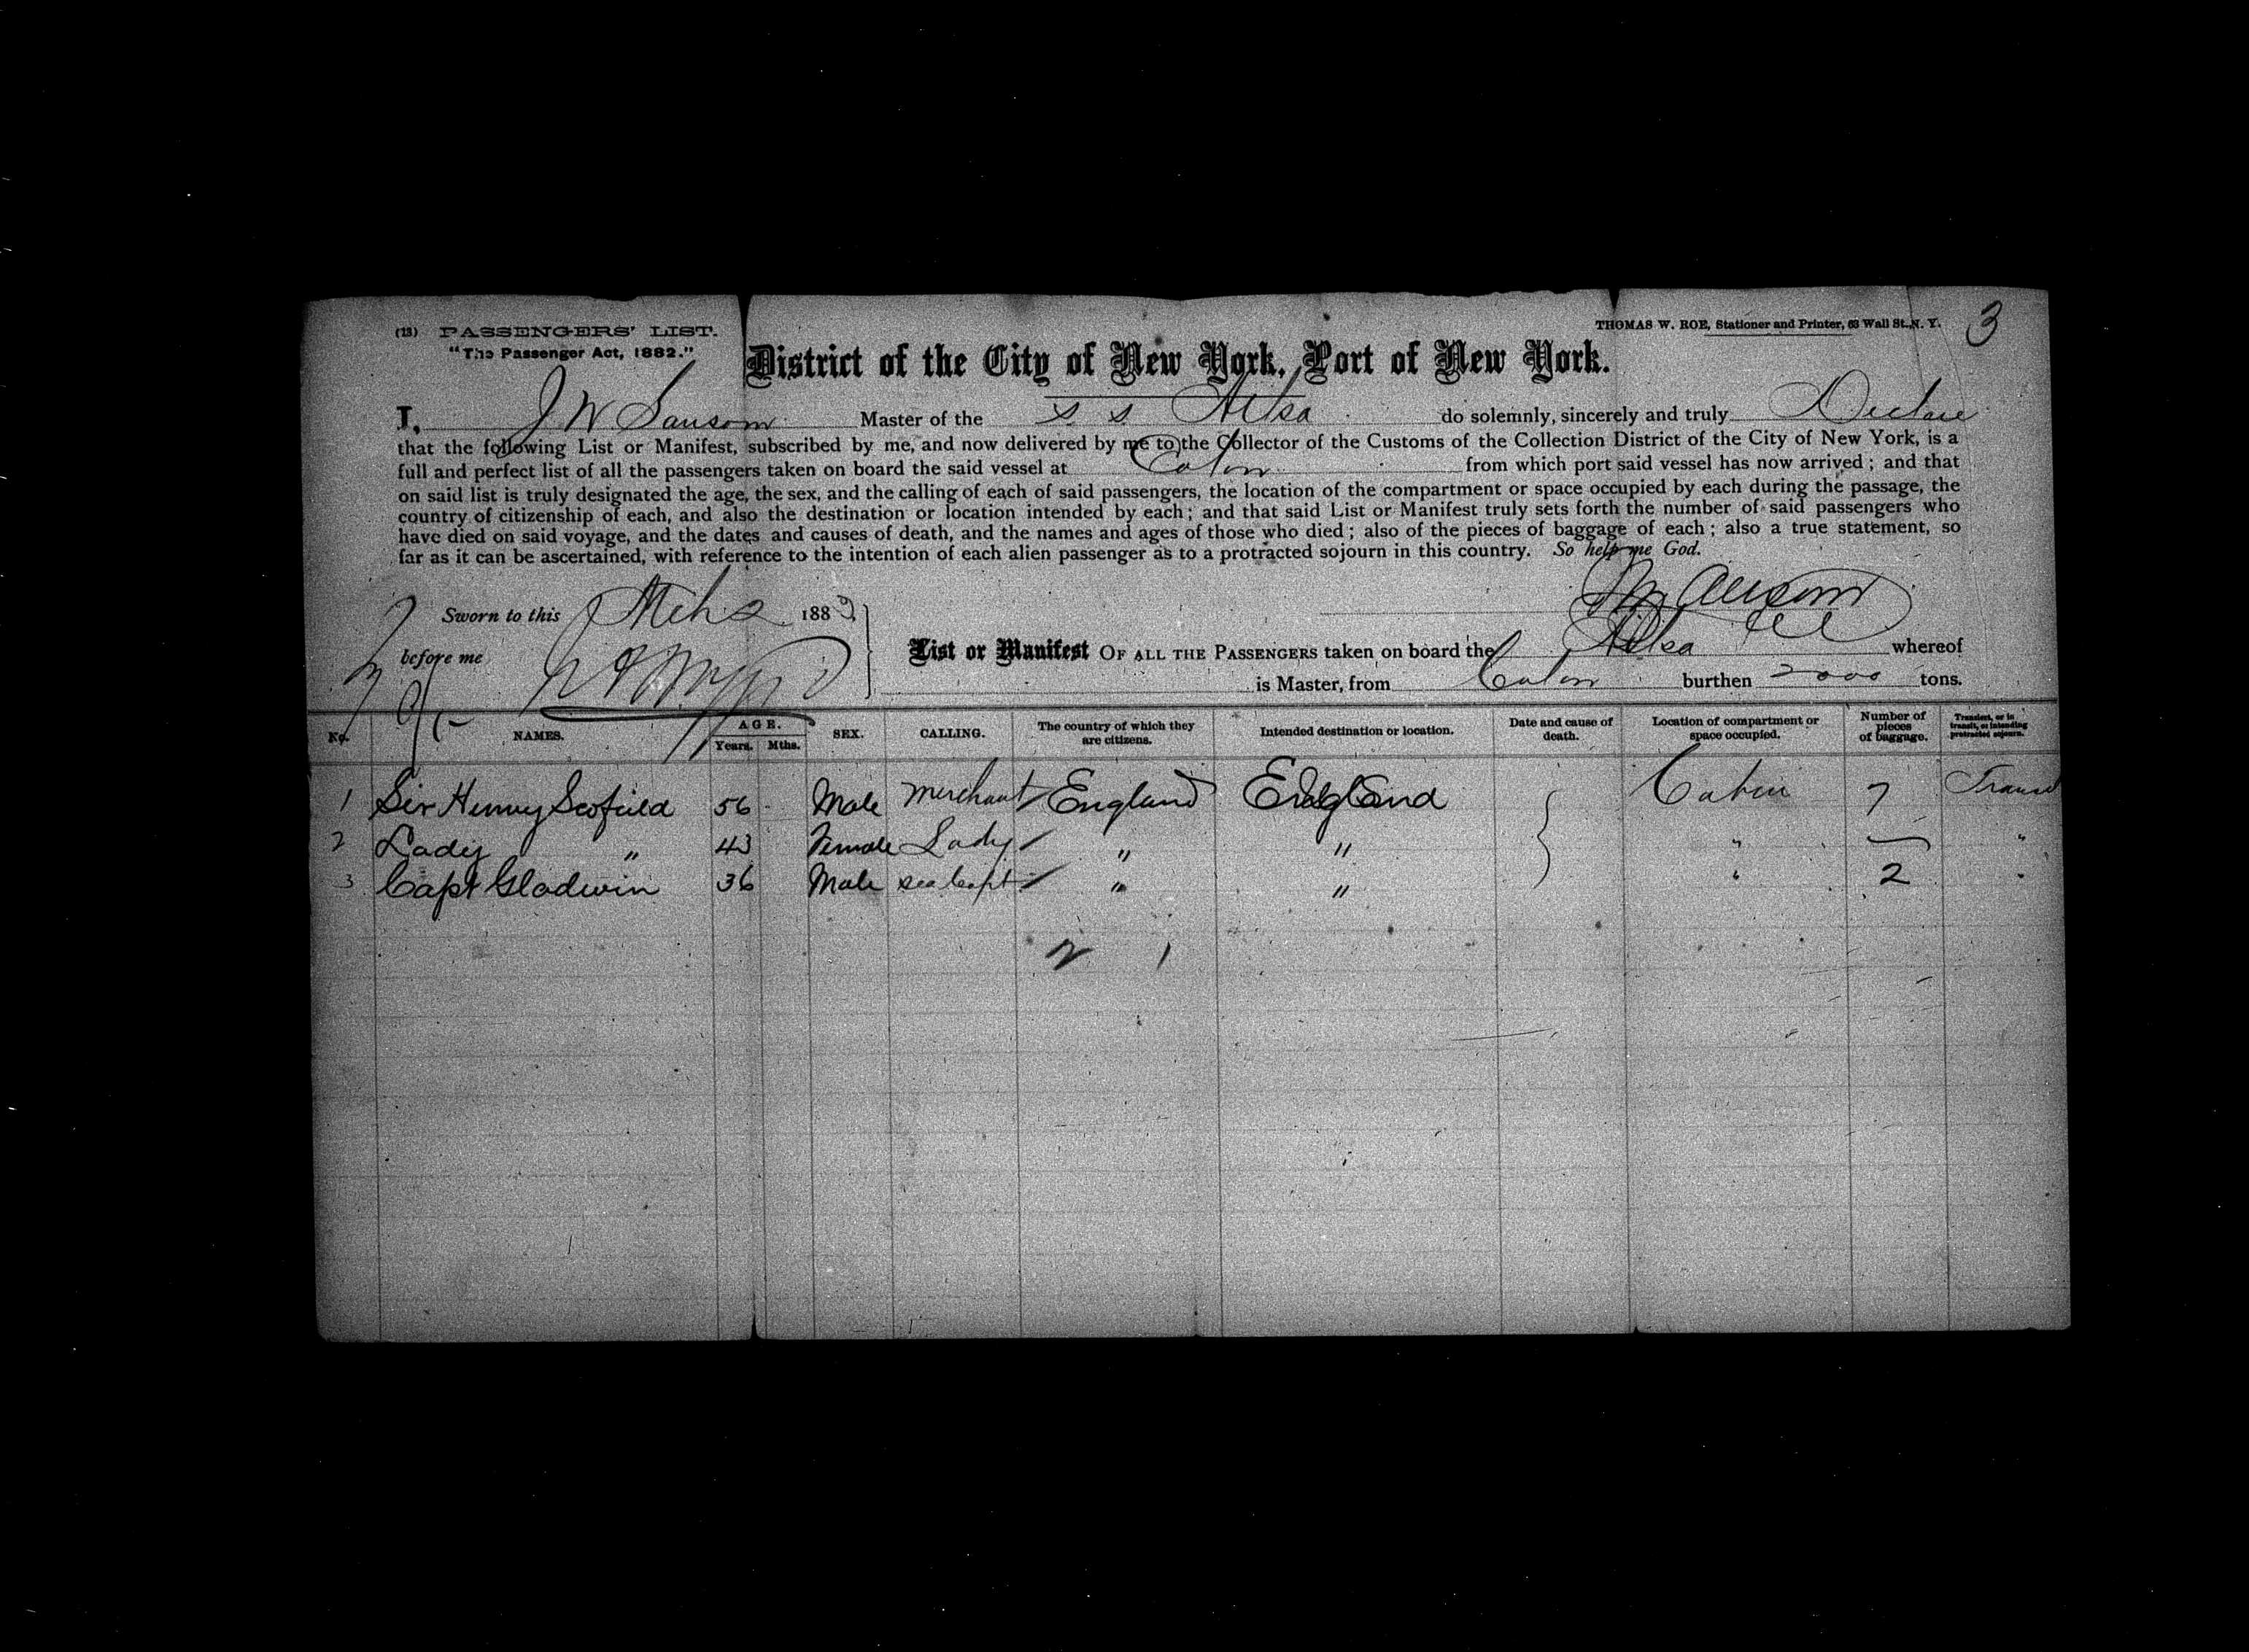 (13) PASSENGERS' LIST.
"The Passenger Act, 1882."
THOMAS W. ROE, Stationer and Printer, 63 Wall St. N. Y.
3
District of the City of New York, Port of New York.
I, J W Sansom Master of the S S Ailsa do solemnly, sincerely and truly Declare
that the following List or Manifest, subscribed by me, and now delivered by me to the Collector of the Customs of the Collection District of the City of New York, is a
full and perfect list of all the passengers taken on board the said vessel at Colon from which port said vessel has now arrived; and that
on said list is truly designated the age, the sex, and the calling of each of said passengers, the location of the compartment or space occupied by each during the passage, the
country of citizenship of each, and also the destination or location intended by each; and that said List or Manifest truly sets forth the number of said passengers who
have died on said voyage, and the dates and causes of death, and the names and ages of those who died; also of the pieces of baggage of each; also a true statement, so
far as it can be ascertained, with reference to the intention of each alien passenger as to a protracted sojourn in this country. So help me God.
Sworn to this Mch 2 1883
before me
List or Manifest OF ALL THE PASSENGERS taken on board the Ailsa whereof
is Master, from Colon burthen 2000 tons.
No. NAMES. AGE. Years. Mths. SEX. CALLING. The country of which they are citizens. Intended destination or location. Date and cause of death. Location of compartment or space occupied. Number of pieces of baggage. Transient, or in transit, or intending protracted sojourn.
1 Sir Henry Scofield 56 Male Merchant England England Cabin 7 Transit
2 Lady " 43 Female Lady " " " — "
3 Capt Gladwin 36 Male Sea Capt " " " 2 "
2 1